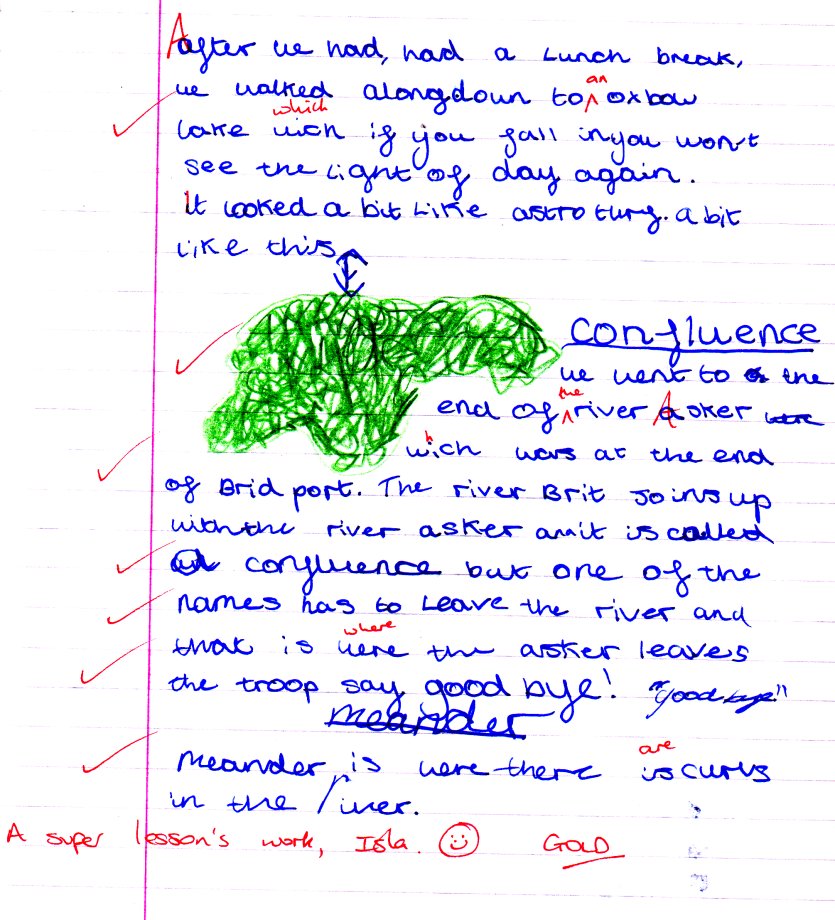 After we had, had a Lunch break,
we walked alongdown to an oxbow
which
Lake wich if you fall in you won't
see the Light of day again.
It looked a bit Like astro turf. a bit
Like this
Confluence
we went to the
end of the river Asker
which was at the end
of Bridport. The river Brit Joins up
with the river asker an it is called
confluence but one of the
names has to Leave the river and
where
that is were the asker leaves
the troop say good bye! "good bye"
meander
are
Meander is were there is curvs
in the river.
A super lesson's work, Isla. GOLD